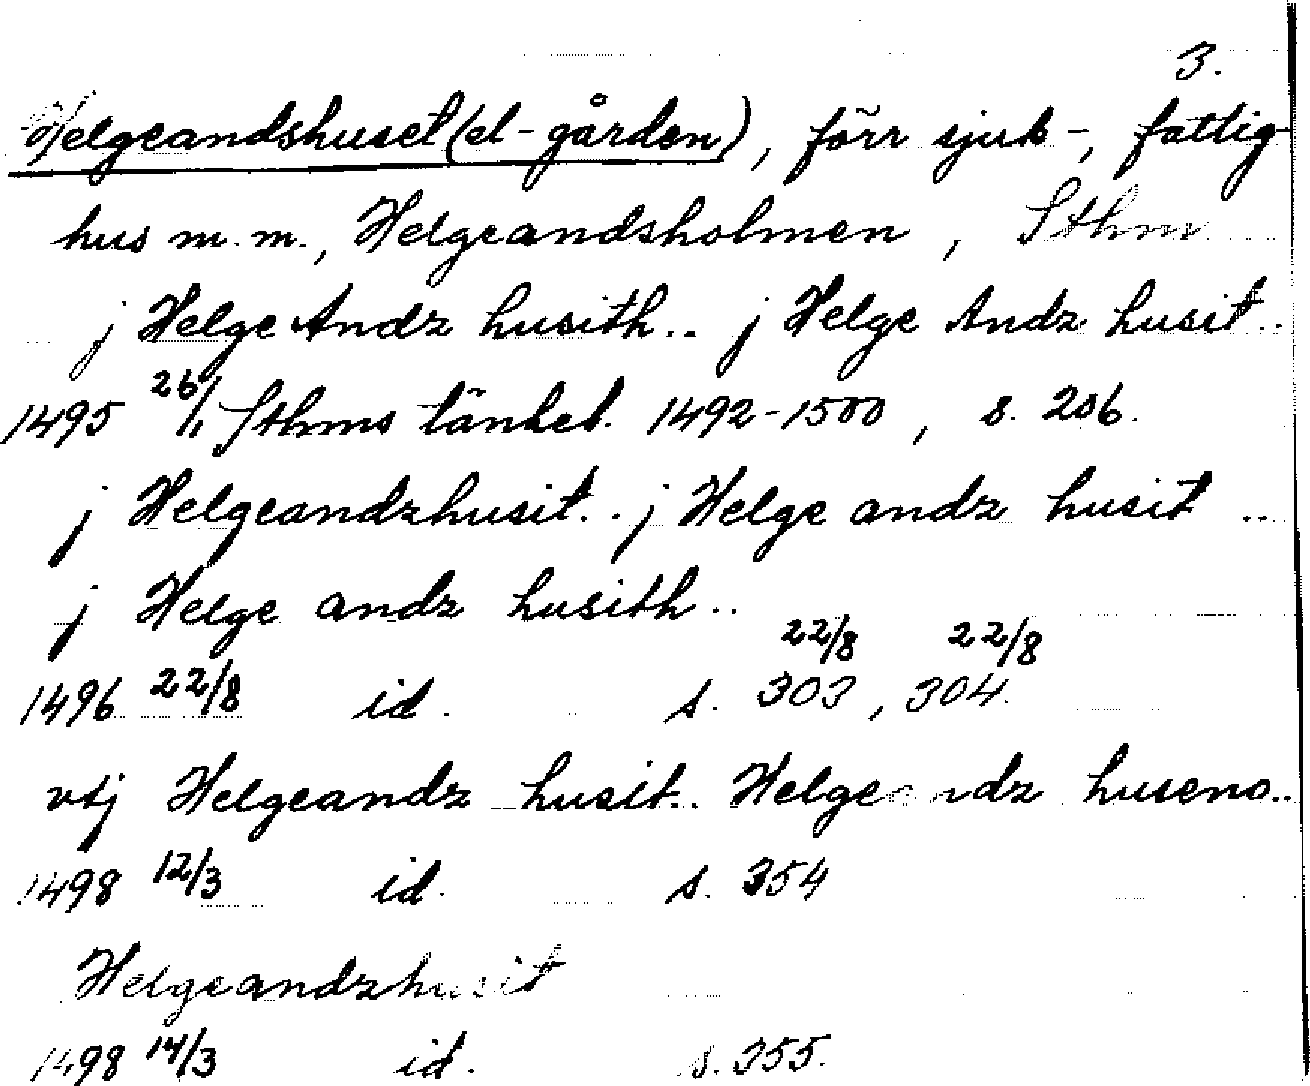 3.
Helgeandshuset (el -gården), förr sjuk-, fattig-
hus m.m., Helgeandsholmen, Sthm
j Helge Andz husith.. j Helge Andz husit..
1495 26/1 Sthms tänkeb. 1492-1500, s. 206.
j Helgeandzhusit.. j Helge andz husit ..
j Helge andz husith..
22/8 22/8
1496 22/8 id. s. 303, 304.
vtj Helgeandz husit.. Helgeandz huseno..
1498 12/3 id. s. 354
Helgeandzhusit
1498 14/3 id. s. 355.